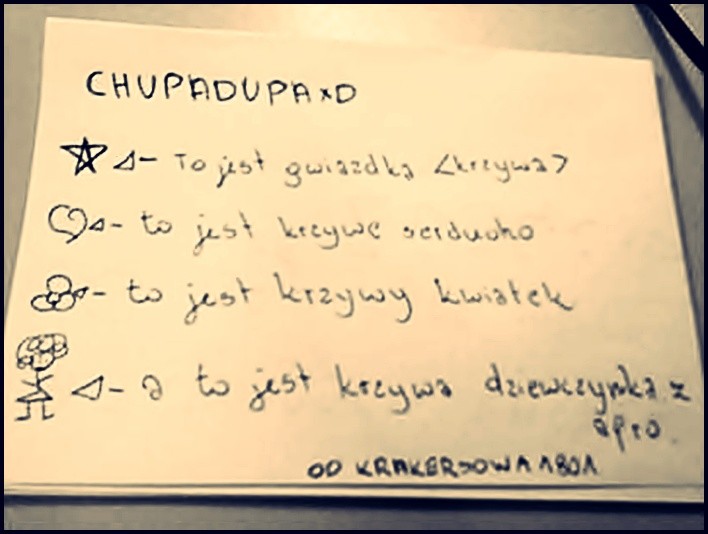 CHUPADUPA xD
◁- To jest gwiazdka <krzywa>
◁- to jest krzywe serducho
◁- to jest krzywy kwiatek
◁- a to jest krzywa dziewczynka z
afro.
OD KRAKERSOWA1801